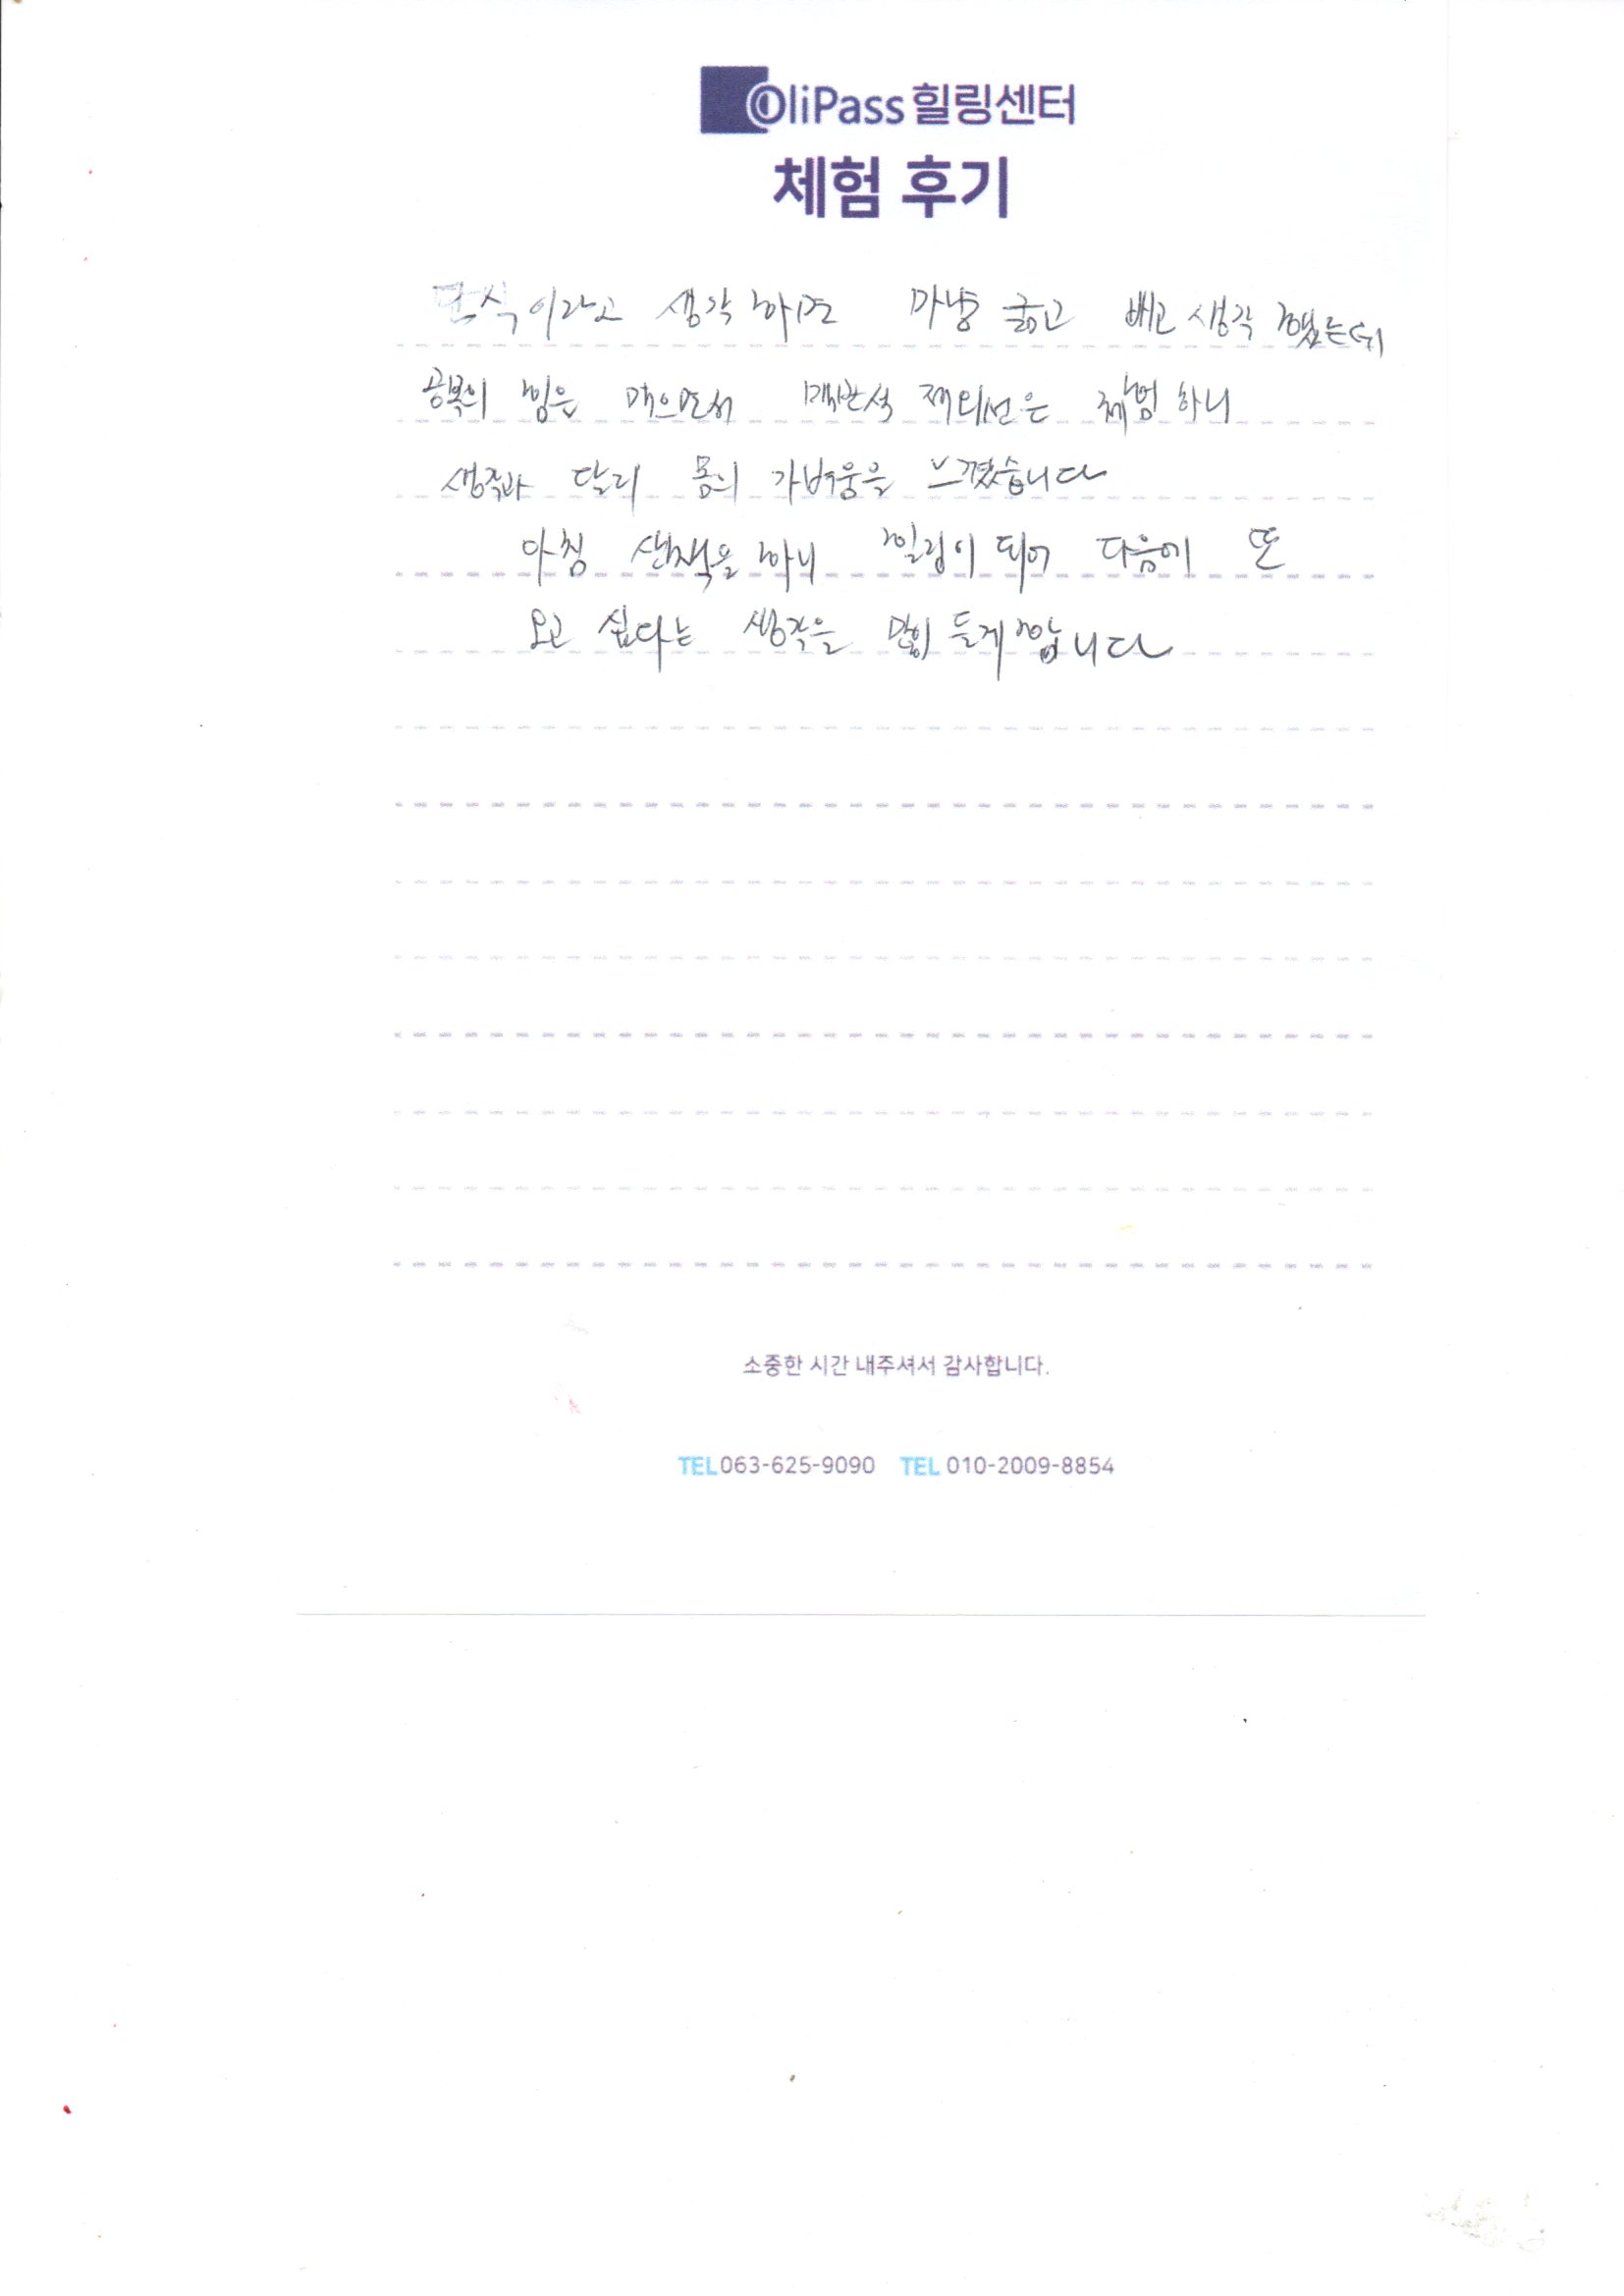 OliPass 힐링센터
체험 후기
단식이라고 생각하면 마냥 굶고 빼고 생각 했는데
공복의 힘을 맥반석 체험 하니
생각과 달리 몸의 가벼움을 느꼈습니다
아침 산책을 하니 힐링이 되어 다음에 또
오고 싶다는 생각을 많이 들게 합니다
소중한 시간 내주셔서 감사합니다.
TEL 063-625-9090 TEL 010-2009-8854